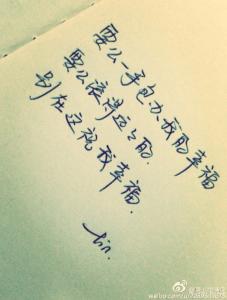 要么一手包办我的幸福
要么滚得远远的.
别在这祝我幸福.